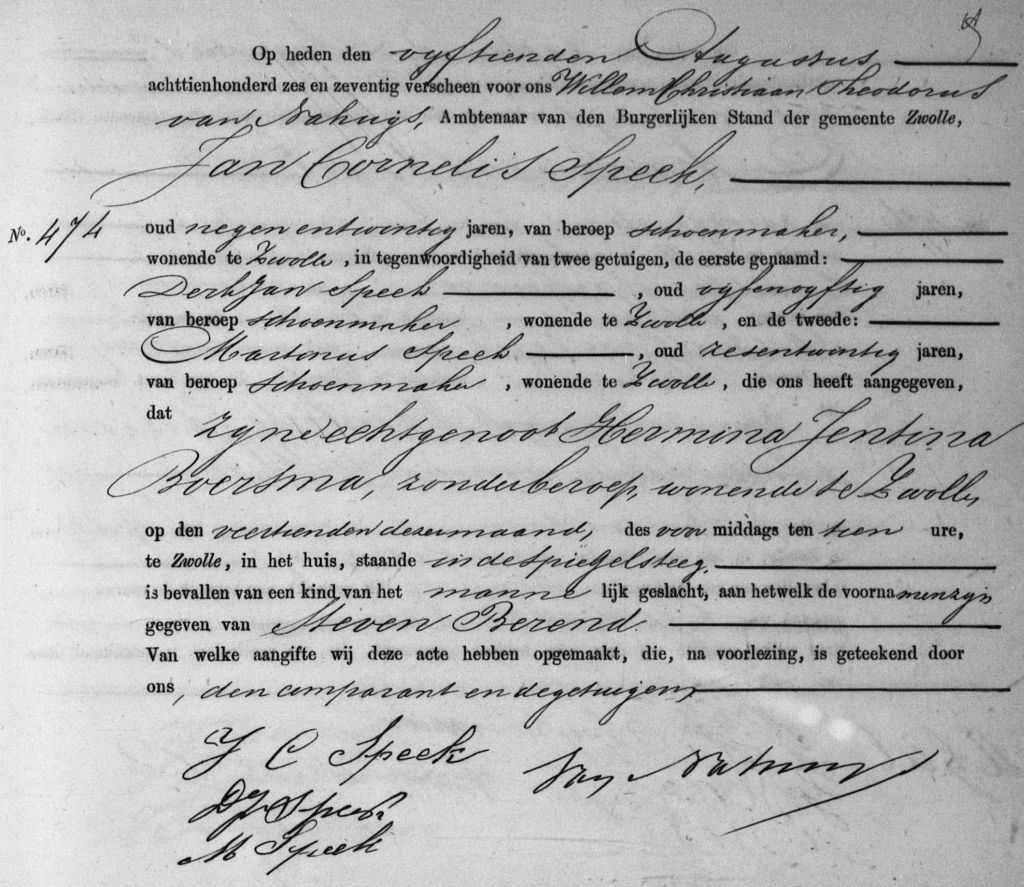 Op heden den vyftienden Augustus
achttienhonderd zes en zeventig verscheen voor ons Willem Christiaan Theodorus
van Nahuys, Ambtenaar van den Burgerlijken Stand der gemeente Zwolle,
Jan Cornelis Speek,
No. 474
oud negenentwintig jaren, van beroep schoenmaker,
wonende te Zwolle, in tegenwoordigheid van twee getuigen, de eerste genaamd:
Derk Jan Speek, oud vyfenvyftig jaren,
van beroep schoenmaker, wonende te Zwolle, en de tweede:
Martinus Speek, oud zesentwintig jaren,
van beroep schoenmaker, wonende te Zwolle, die ons heeft aangegeven,
dat zyne echtgenoot Hermina Jentina
Boersma, zonder beroep, wonende te Zwolle,
op den veertienden dezer maand, des voor middags ten tien ure,
te Zwolle, in het huis, staande in de Spiegelsteeg.
is bevallen van een kind van het manne lijk geslacht, aan hetwelk de voornamen zyn
gegeven van Steven Berend.
Van welke aangifte wij deze acte hebben opgemaakt, die, na voorlezing, is geteekend door
ons, den comparant en de getuigen,
J C Speek
Van Nahuys
DJ Speek
M Speek